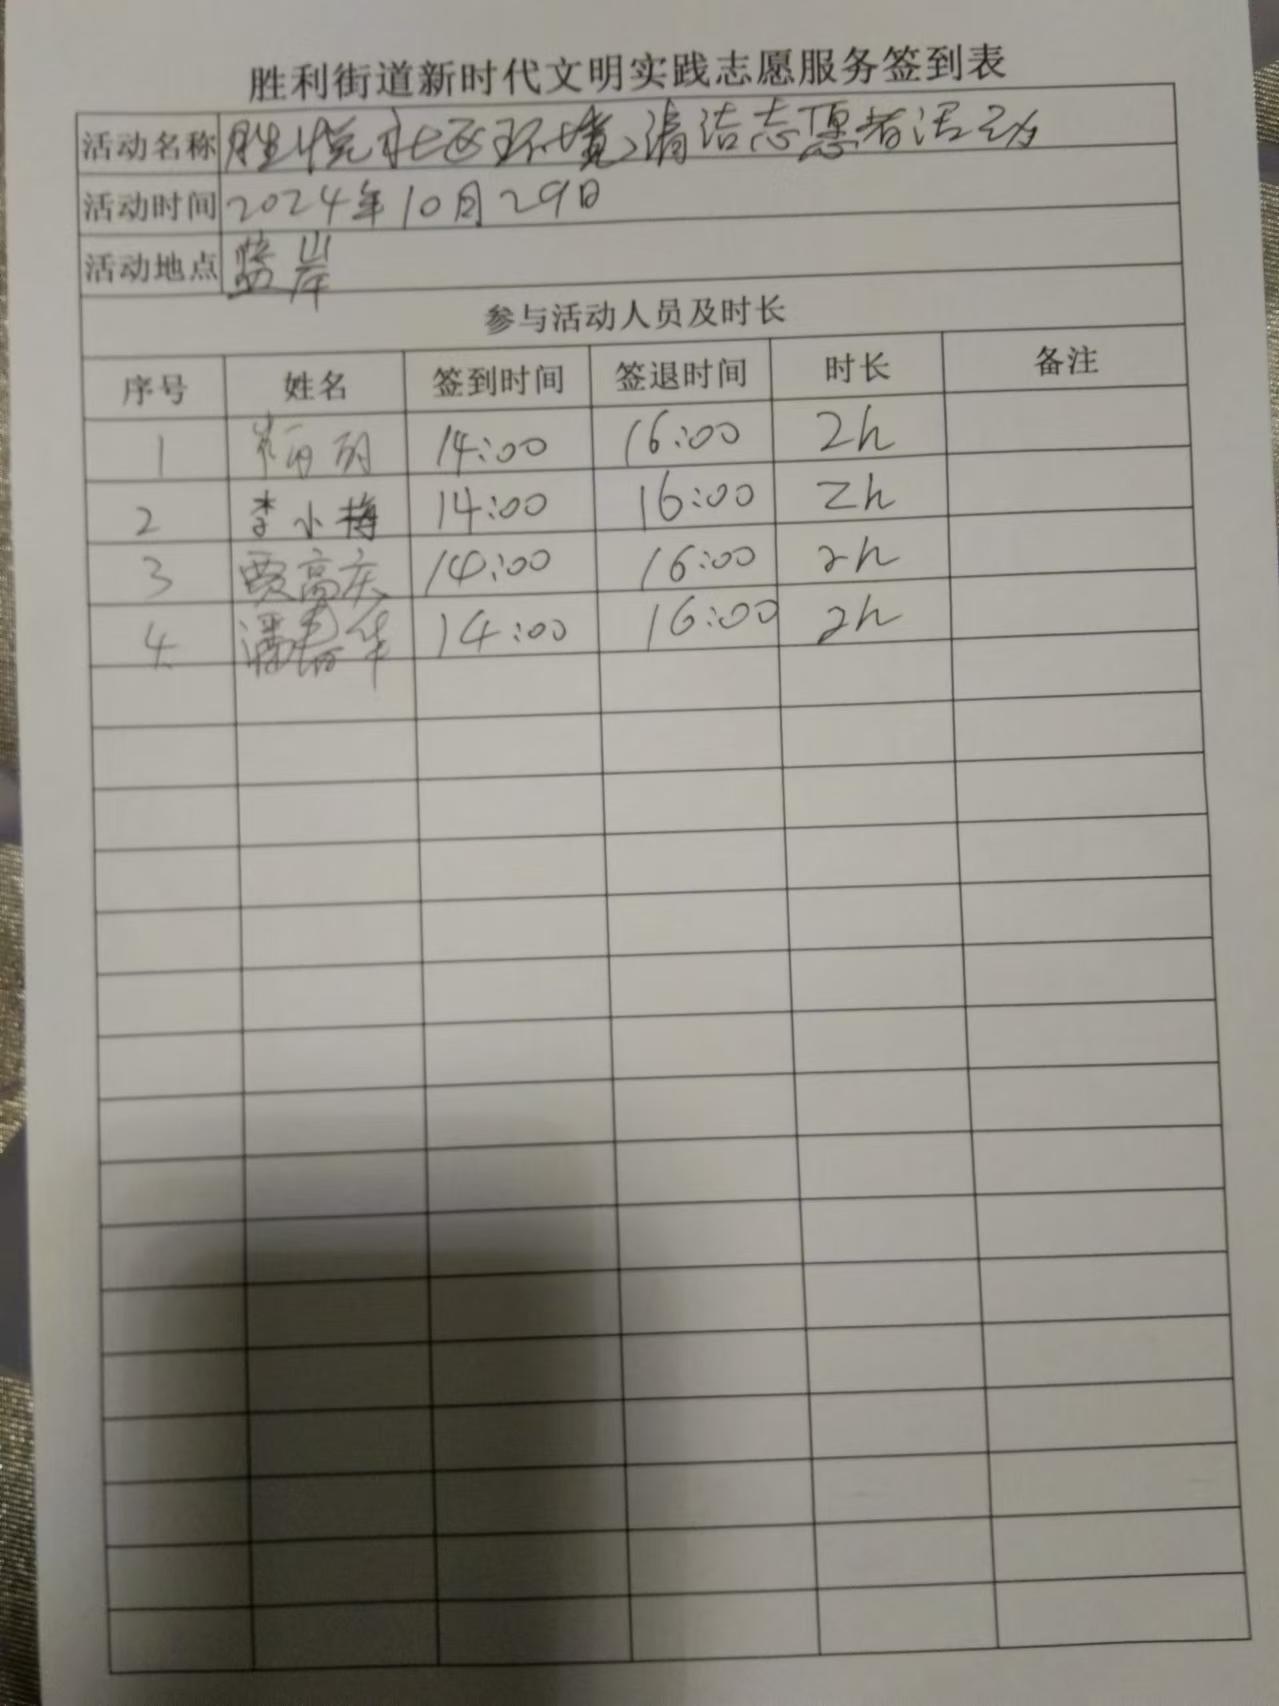 胜利街道新时代文明实践志愿服务签到表
活动名称 胜悦社区环境清洁志愿者活动
活动时间 2024年10月29日
活动地点 蓝岸
参与活动人员及时长
序号 姓名 签到时间 签退时间 时长 备注
1 14:00 16:00 2h
2 李小梅 14:00 16:00 2h
3 贾高庆 14:00 16:00 2h
4 潘春华 14:00 16:00 2h